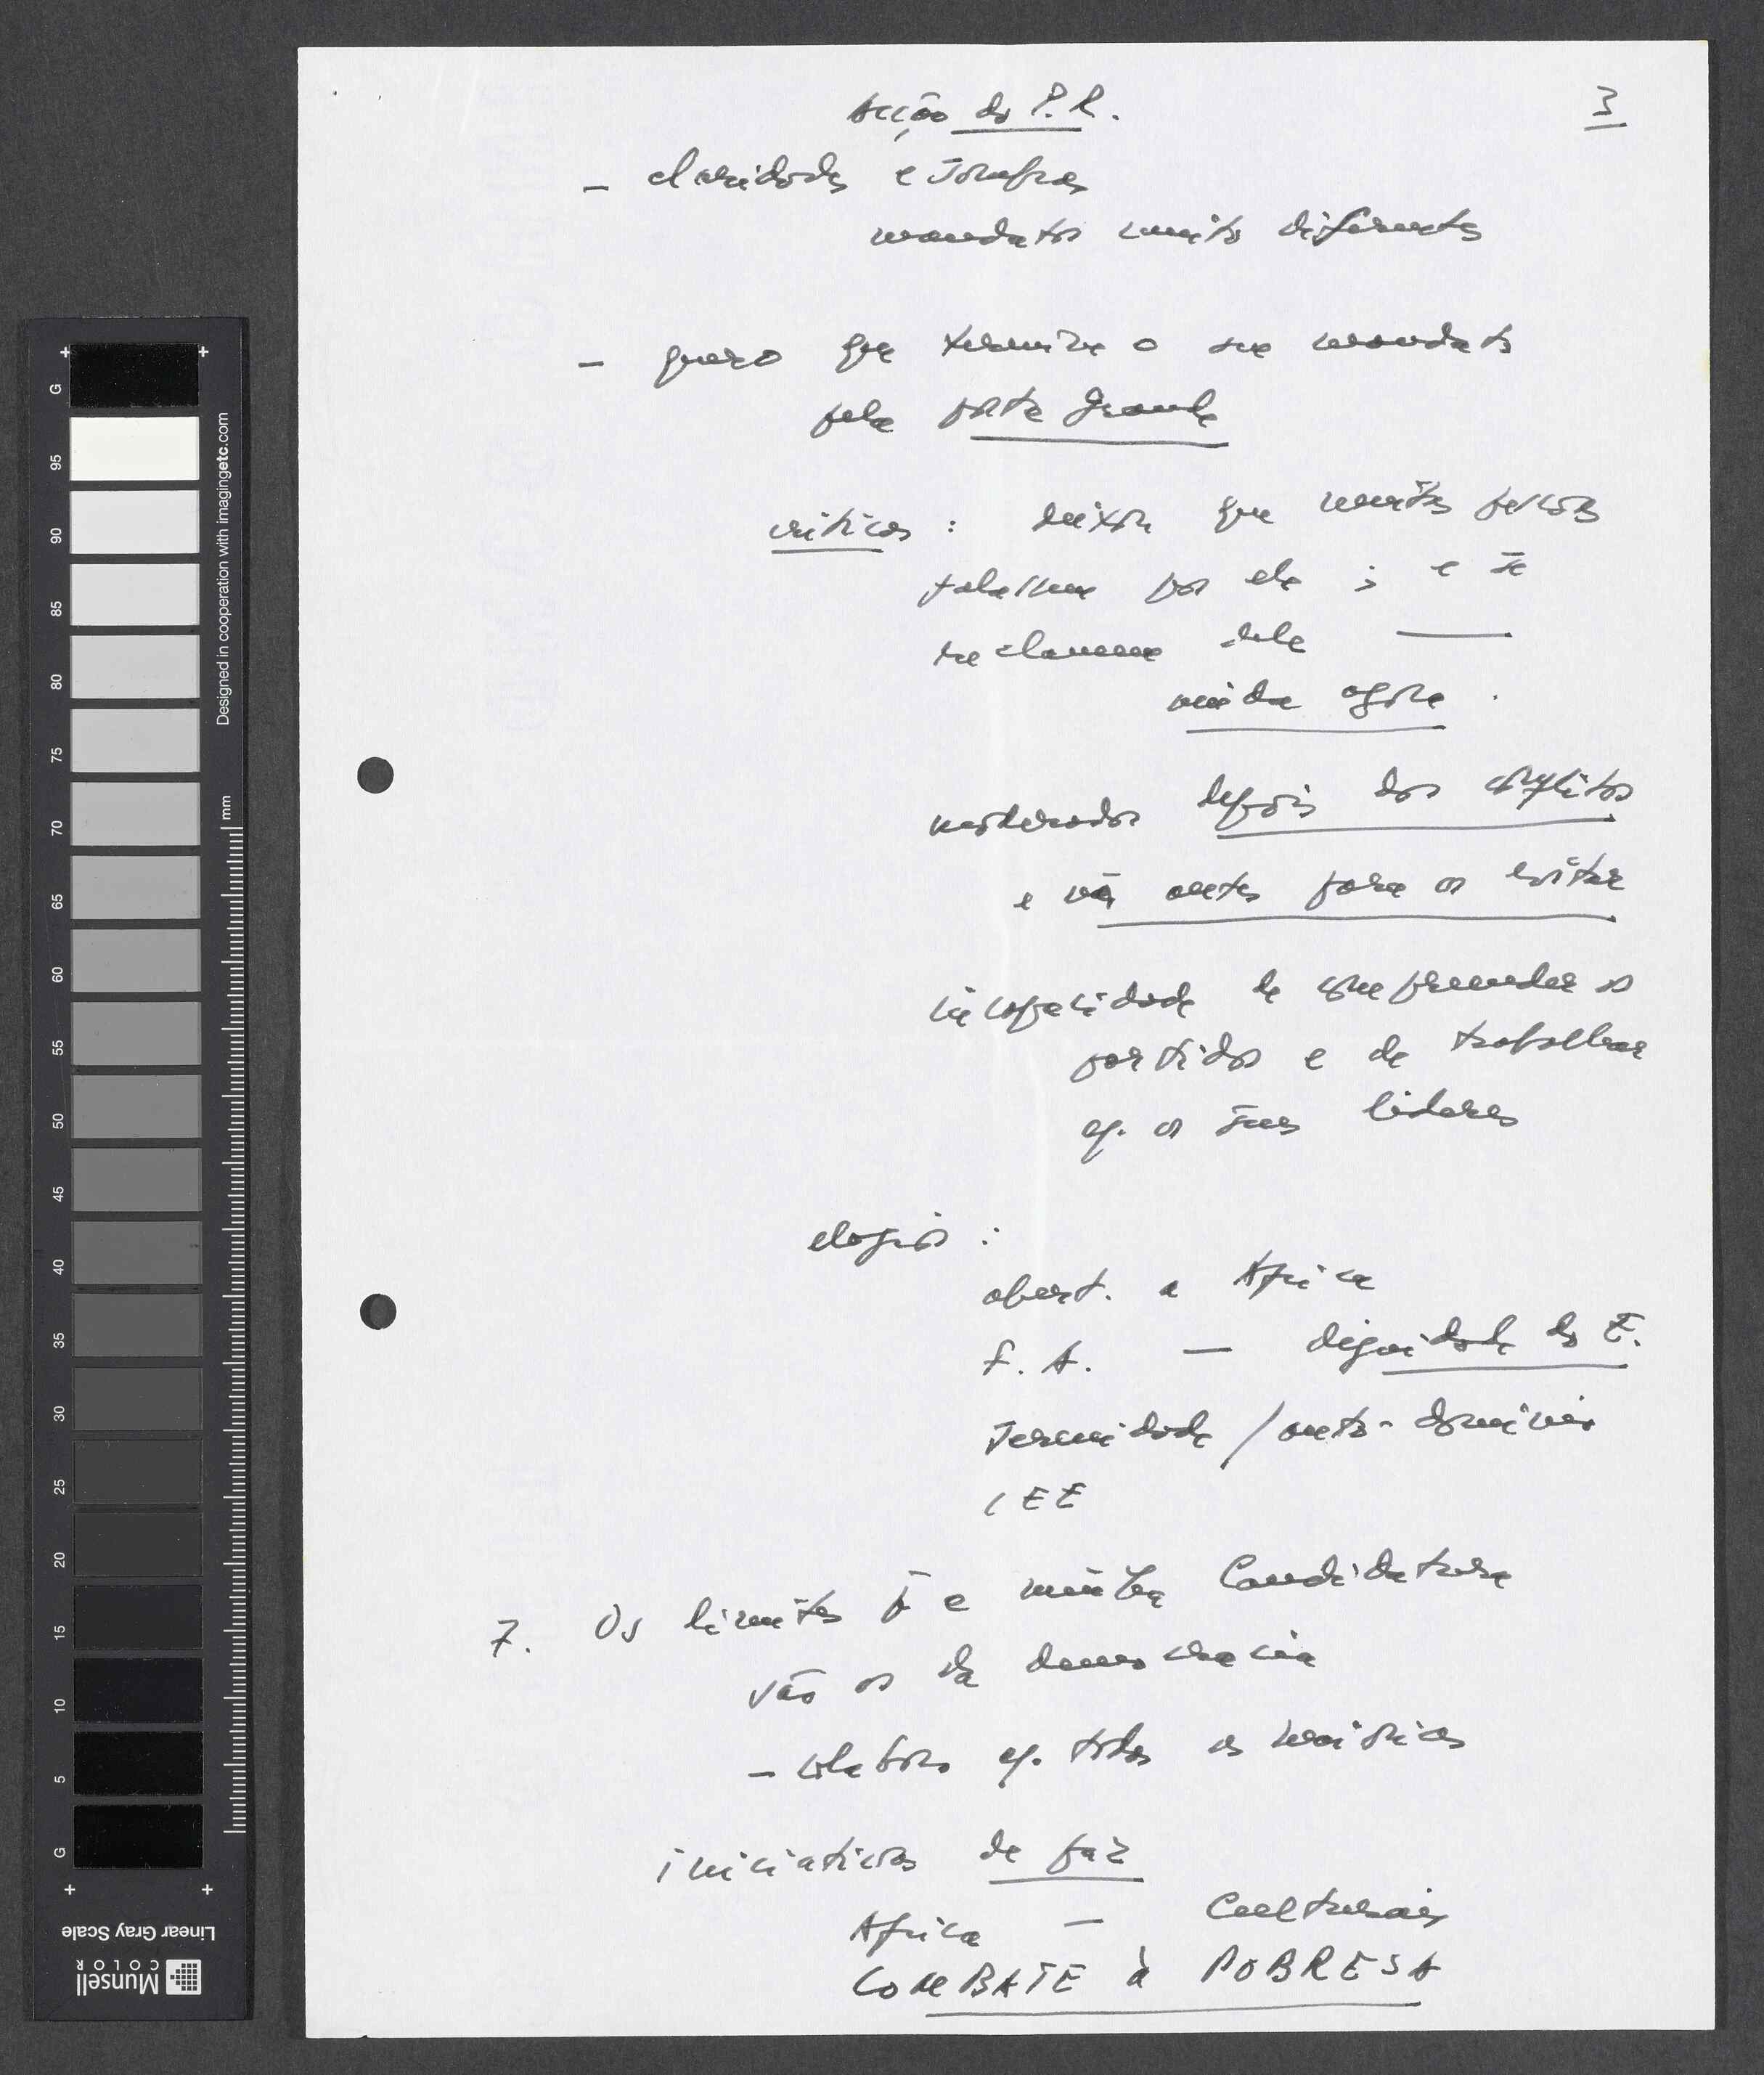 3
Acção do P.R.
- claridades e
mandatos muito diferentes
- quero que termine o seu mandato
pela porta grande
críticas : deixou que muitas pessoas
falassem por ele ; e se
reclamem dele ——
ainda agora .
moderador depois dos conflitos
e não antes para os evitar
incapacidade de compreender os
partidos e de trabalhar
c/. os seus líderes
elogios :
abert. a Africa
F. A. — dignidade do E.
serenidade / auto-domínio
CEE
7. Os limites p/ a minha Candidatura
são os da democracia
- colaboro c/. todos os
iniciativas de paz
Africa — Culturais
COMBATE à POBRESA
G
95
90
85
80
75
70
65
60
55
50
45
40
35
30
25
20
15
10
5
G
Designed in cooperation with imagingetc.com
mm
Linear Gray Scale
Munsell
COLOR